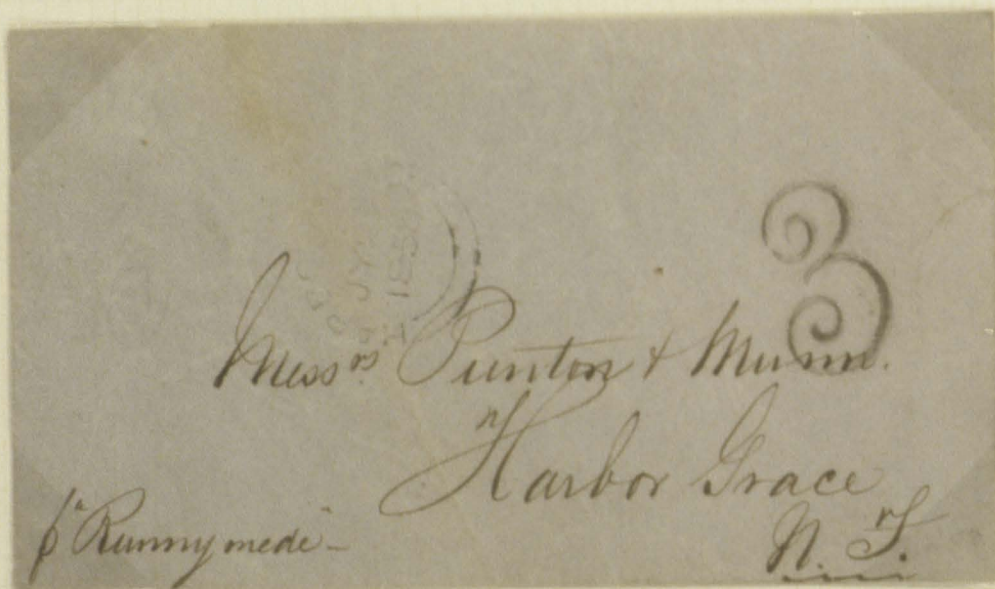 3
Mess.rs Punton & Munn.
Harbor Grace
N. F.
pr "Runnymede"